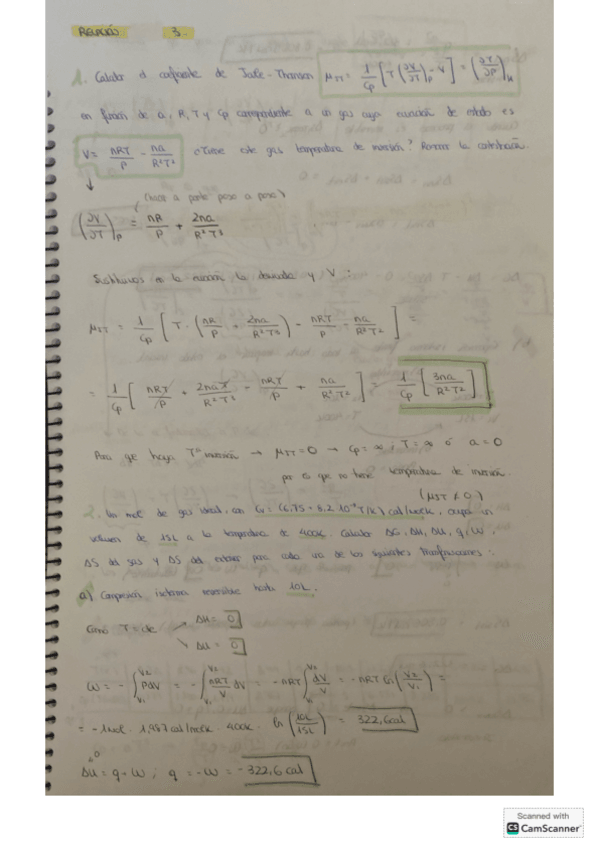 RELACIÓN 3.
1. Calcular el coeficiente de Joule-Thomson μJT = 1/Cp [T(∂V/∂T)P - V] = (∂T/∂P)H
en función de a, R, T y Cp correspondiente a un gas cuya ecuación de estado es
V = nRT/P - na/R²T² ¿Tiene este gas temperatura de inversión? Razonar la contestación.
(hace a parte paso a paso)
(∂V/∂T)P = nR/P + 2na/R²T³
Sustituimos en la ecuación la derivada y V:
μJT = 1/Cp [T · (nR/P + 2na/R²T³) - nRT/P - na/R²T²] =
= 1/Cp [nRT/P + 2naT/R²T³ - nRT/P + na/R²T²] = 1/Cp [3na/R²T²]
Para que haya Tª inversión → μJT = 0 → Cp = ∞ ; T = ∞ ó a = 0
por lo que no tiene temperatura de inversión.
(μJT ≠ 0)
2. Un mol de gas ideal, con (6.75 + 8.2 10⁻⁴ T/K) cal/molK, ocupa un
volumen de 15L a la temperatura de 400K. Calcular ΔG, ΔH, ΔU, q, W,
ΔS del gas y ΔS del exterior para cada una de las siguientes transformaciones:
a) Compresión isoterma reversible hasta 10L.
Como T = cte → ΔH = 0
↘ ΔU = 0
W = - ∫V1 V2 PdV = - ∫V1 V2 nRT/V dV = - nRT ∫V1 V2 dV/V = - nRT Ln(V2/V1) =
= - 1mol · 1,987 cal/molK · 400K · ln(10L/15L) = 322,6cal
ΔU = q + W ; q = -W = -322,6 cal
Scanned with
CS CamScanner